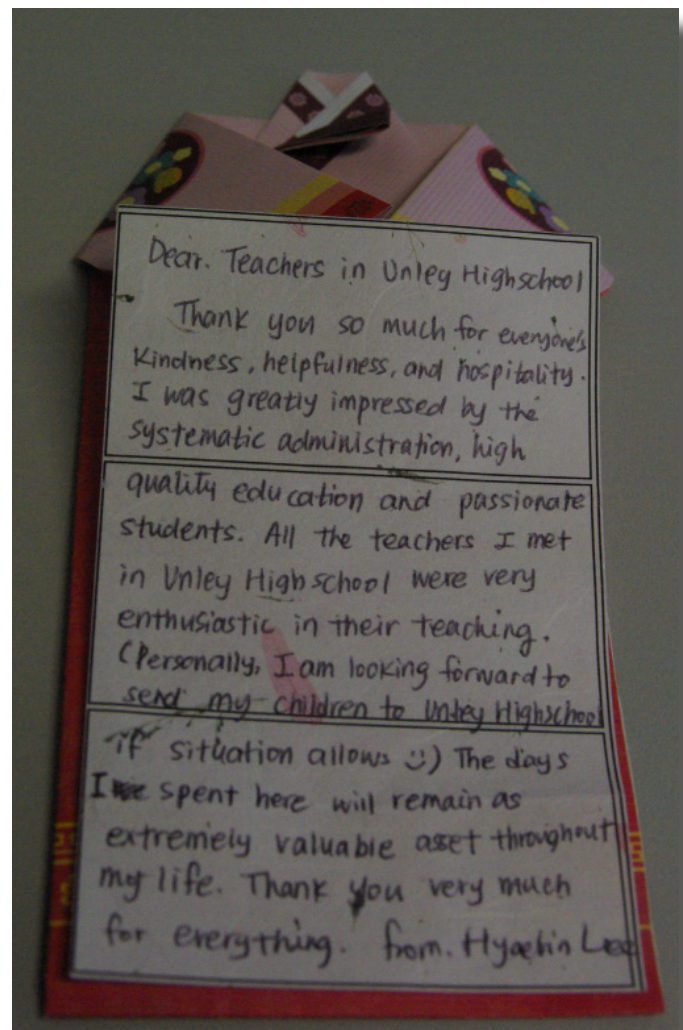 Dear. Teachers in Unley Highschool
Thank you so much for everyone's
kindness, helpfulness, and hospitality.
I was greatly impressed by the
systematic administration, high
quality education and passionate
students. All the teachers I met
in Unley Highschool were very
enthusiastic in their teaching.
(Personally, I am looking forward to
send my children to Unley Highschool
if situation allows :)) The days
I've spent here will remain as
extremely valuable asset throughout
my life. Thank you very much
for everything. from. Lee